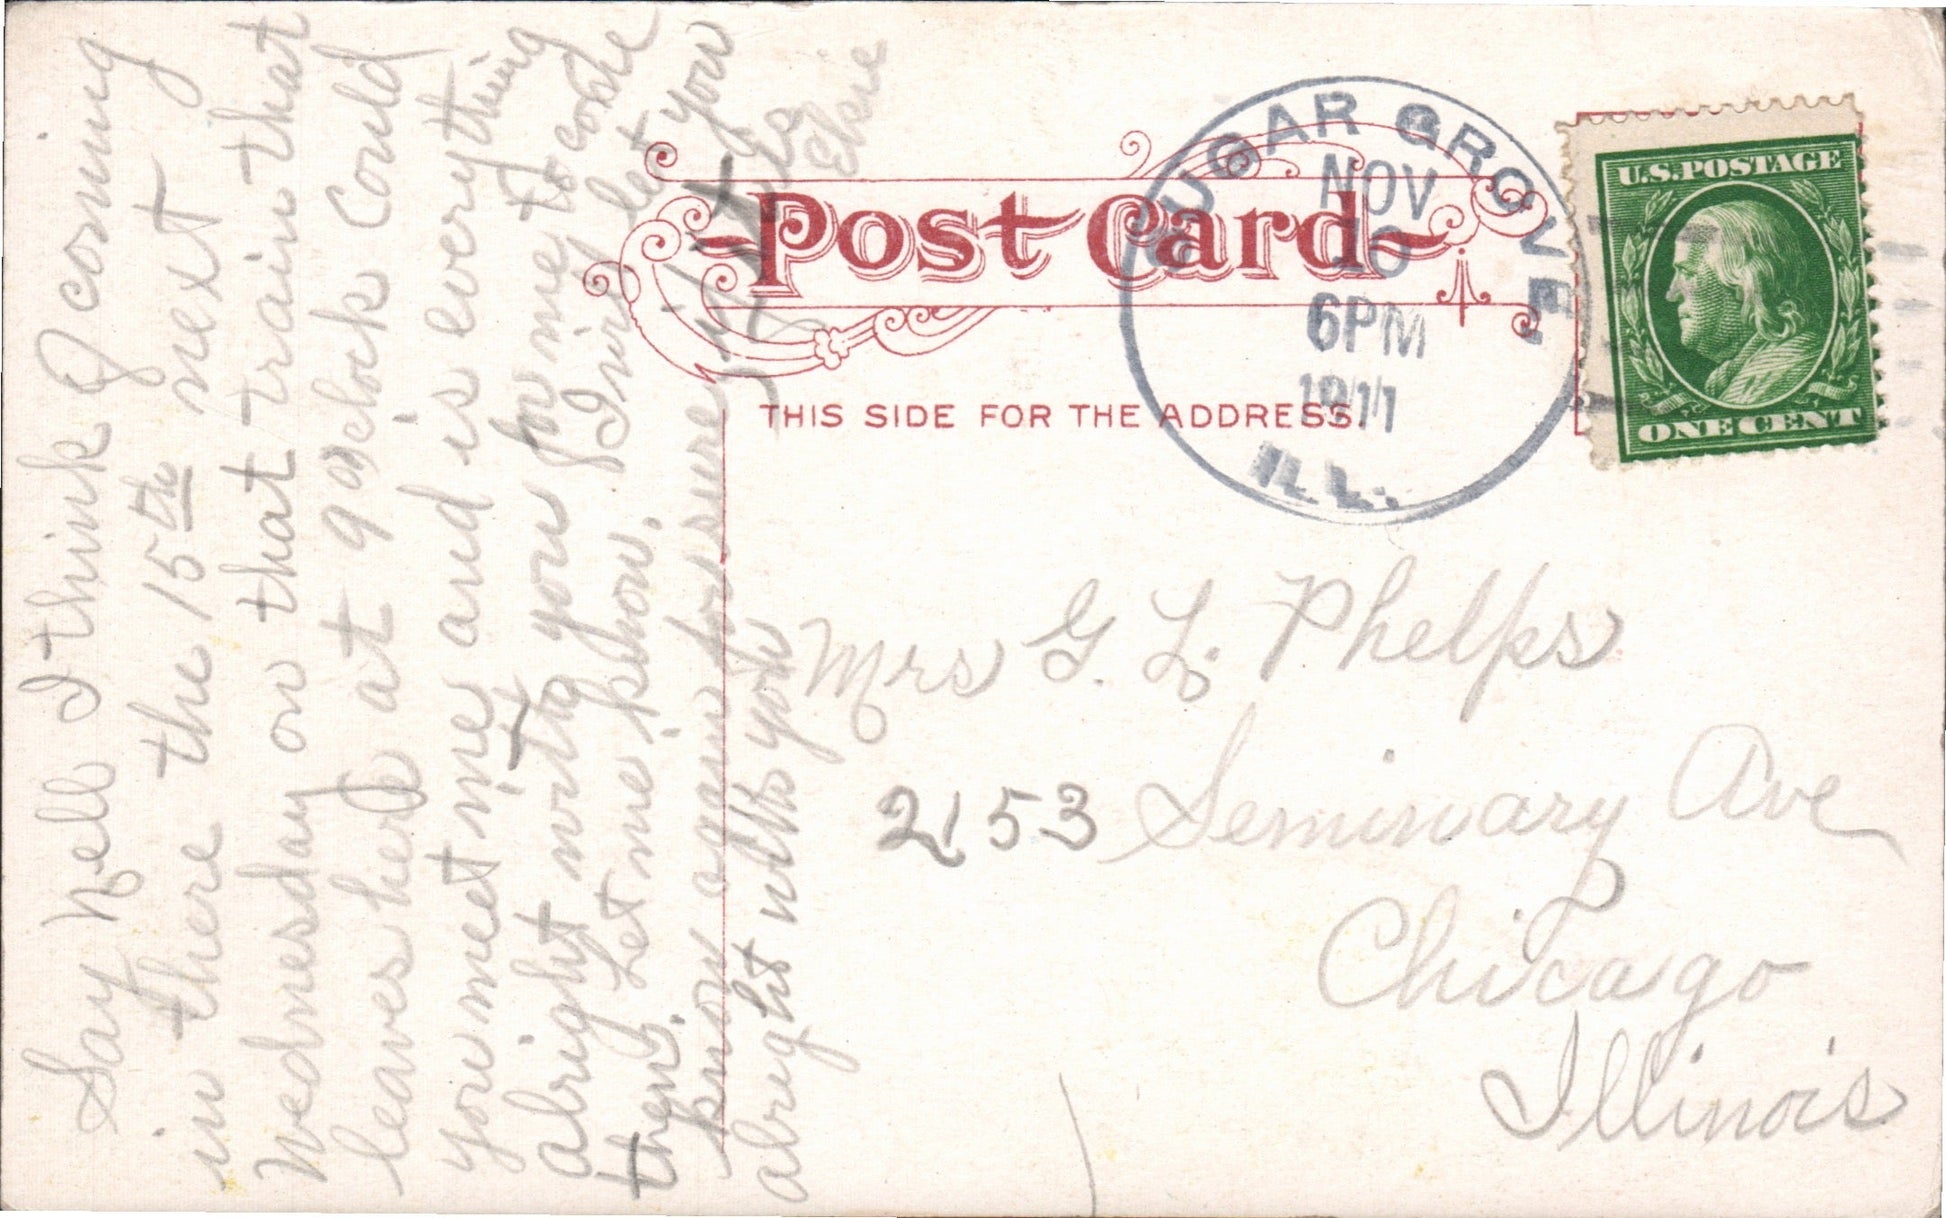 Say Nell I think of coming
in there the 15th next
Wednesday on that train that
leaves here at 9 oclock Could
you meet me and is everything
alright with you for me to come
then. Let me know. I will let you
know again for sure if it is
alright with you
Elsie
Post Card
THIS SIDE FOR THE ADDRESS.
SUGAR GROVE
NOV
10
6PM
1911
ILL.
U.S. POSTAGE
ONE CENT
Mrs G. L. Phelps
2153 Seminary Ave
Chicago
Illinois